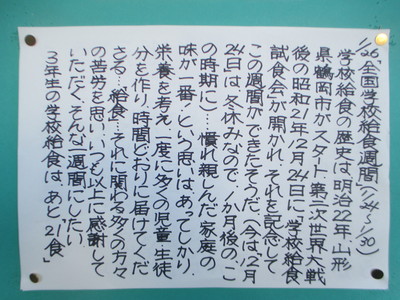 1/26、“全国学校給食週間”(1/24〜1/30)
学校給食の歴史は、明治22年、山形
県鶴岡市がスタート。第二次世界大戦
後の昭和21年12月24日に「学校給食
試食会」が開かれ、それを記念して
この週間ができたそうだ。(今は、「12月
24日」は、冬休みなので、1か月後の、こ
の時期に…) 慣れ親しんだ“家庭の
味が一番”という思いはあってしかり、
栄養を考え、一度に多くの児童生徒
分を作り、時間どおりに届けてくだ
さる…“給食”…それに関わる多くの方々
の苦労を思い、いつも以上に感謝して
いただく、そんな一週間にしたい。
3年生の学校給食は、あと“21食”